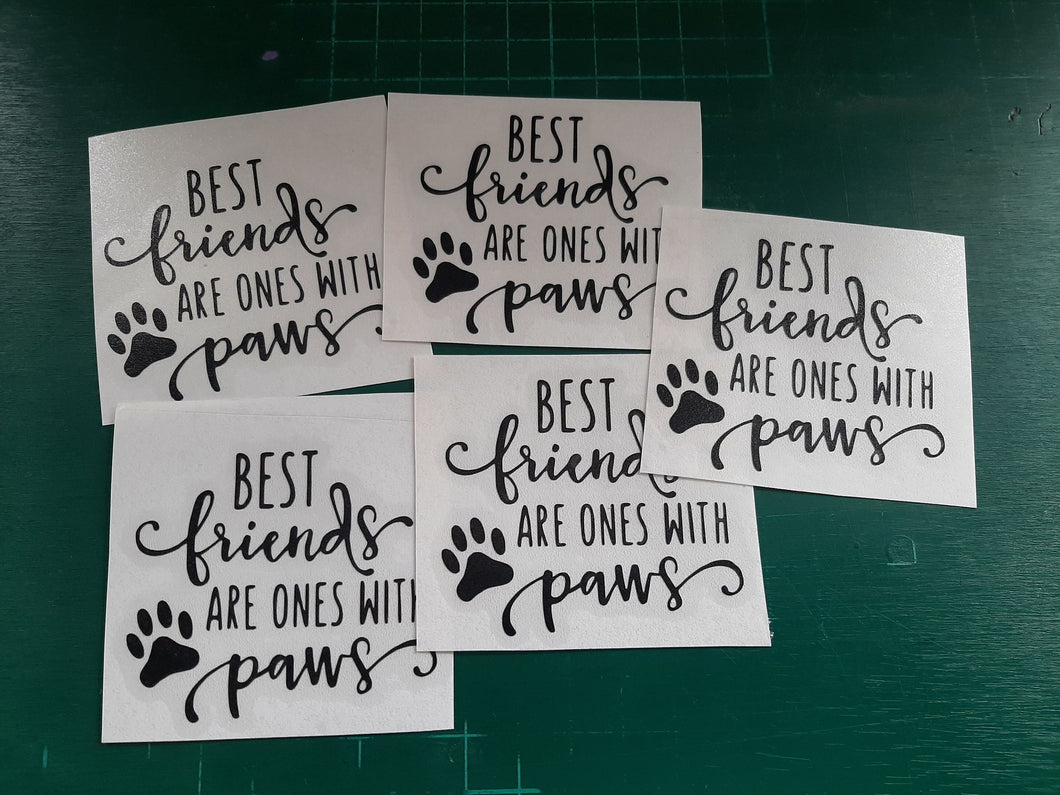 BEST
friends
ARE ONES WITH
paws
BEST
friends
ARE ONES WIT
paws
BEST
friends
ARE ONES WITH
paws
BEST
friends
ARE ONES WITH
paws
BEST
friend
ARE ONES WITH
paws